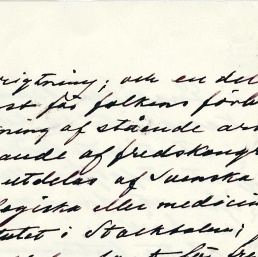 rigtning; och en del
st för folkens förbr
ning af stående ar
ande af fredskongr
utdelas af Svenska
logiska eller medicin
tutet i Stockholm;